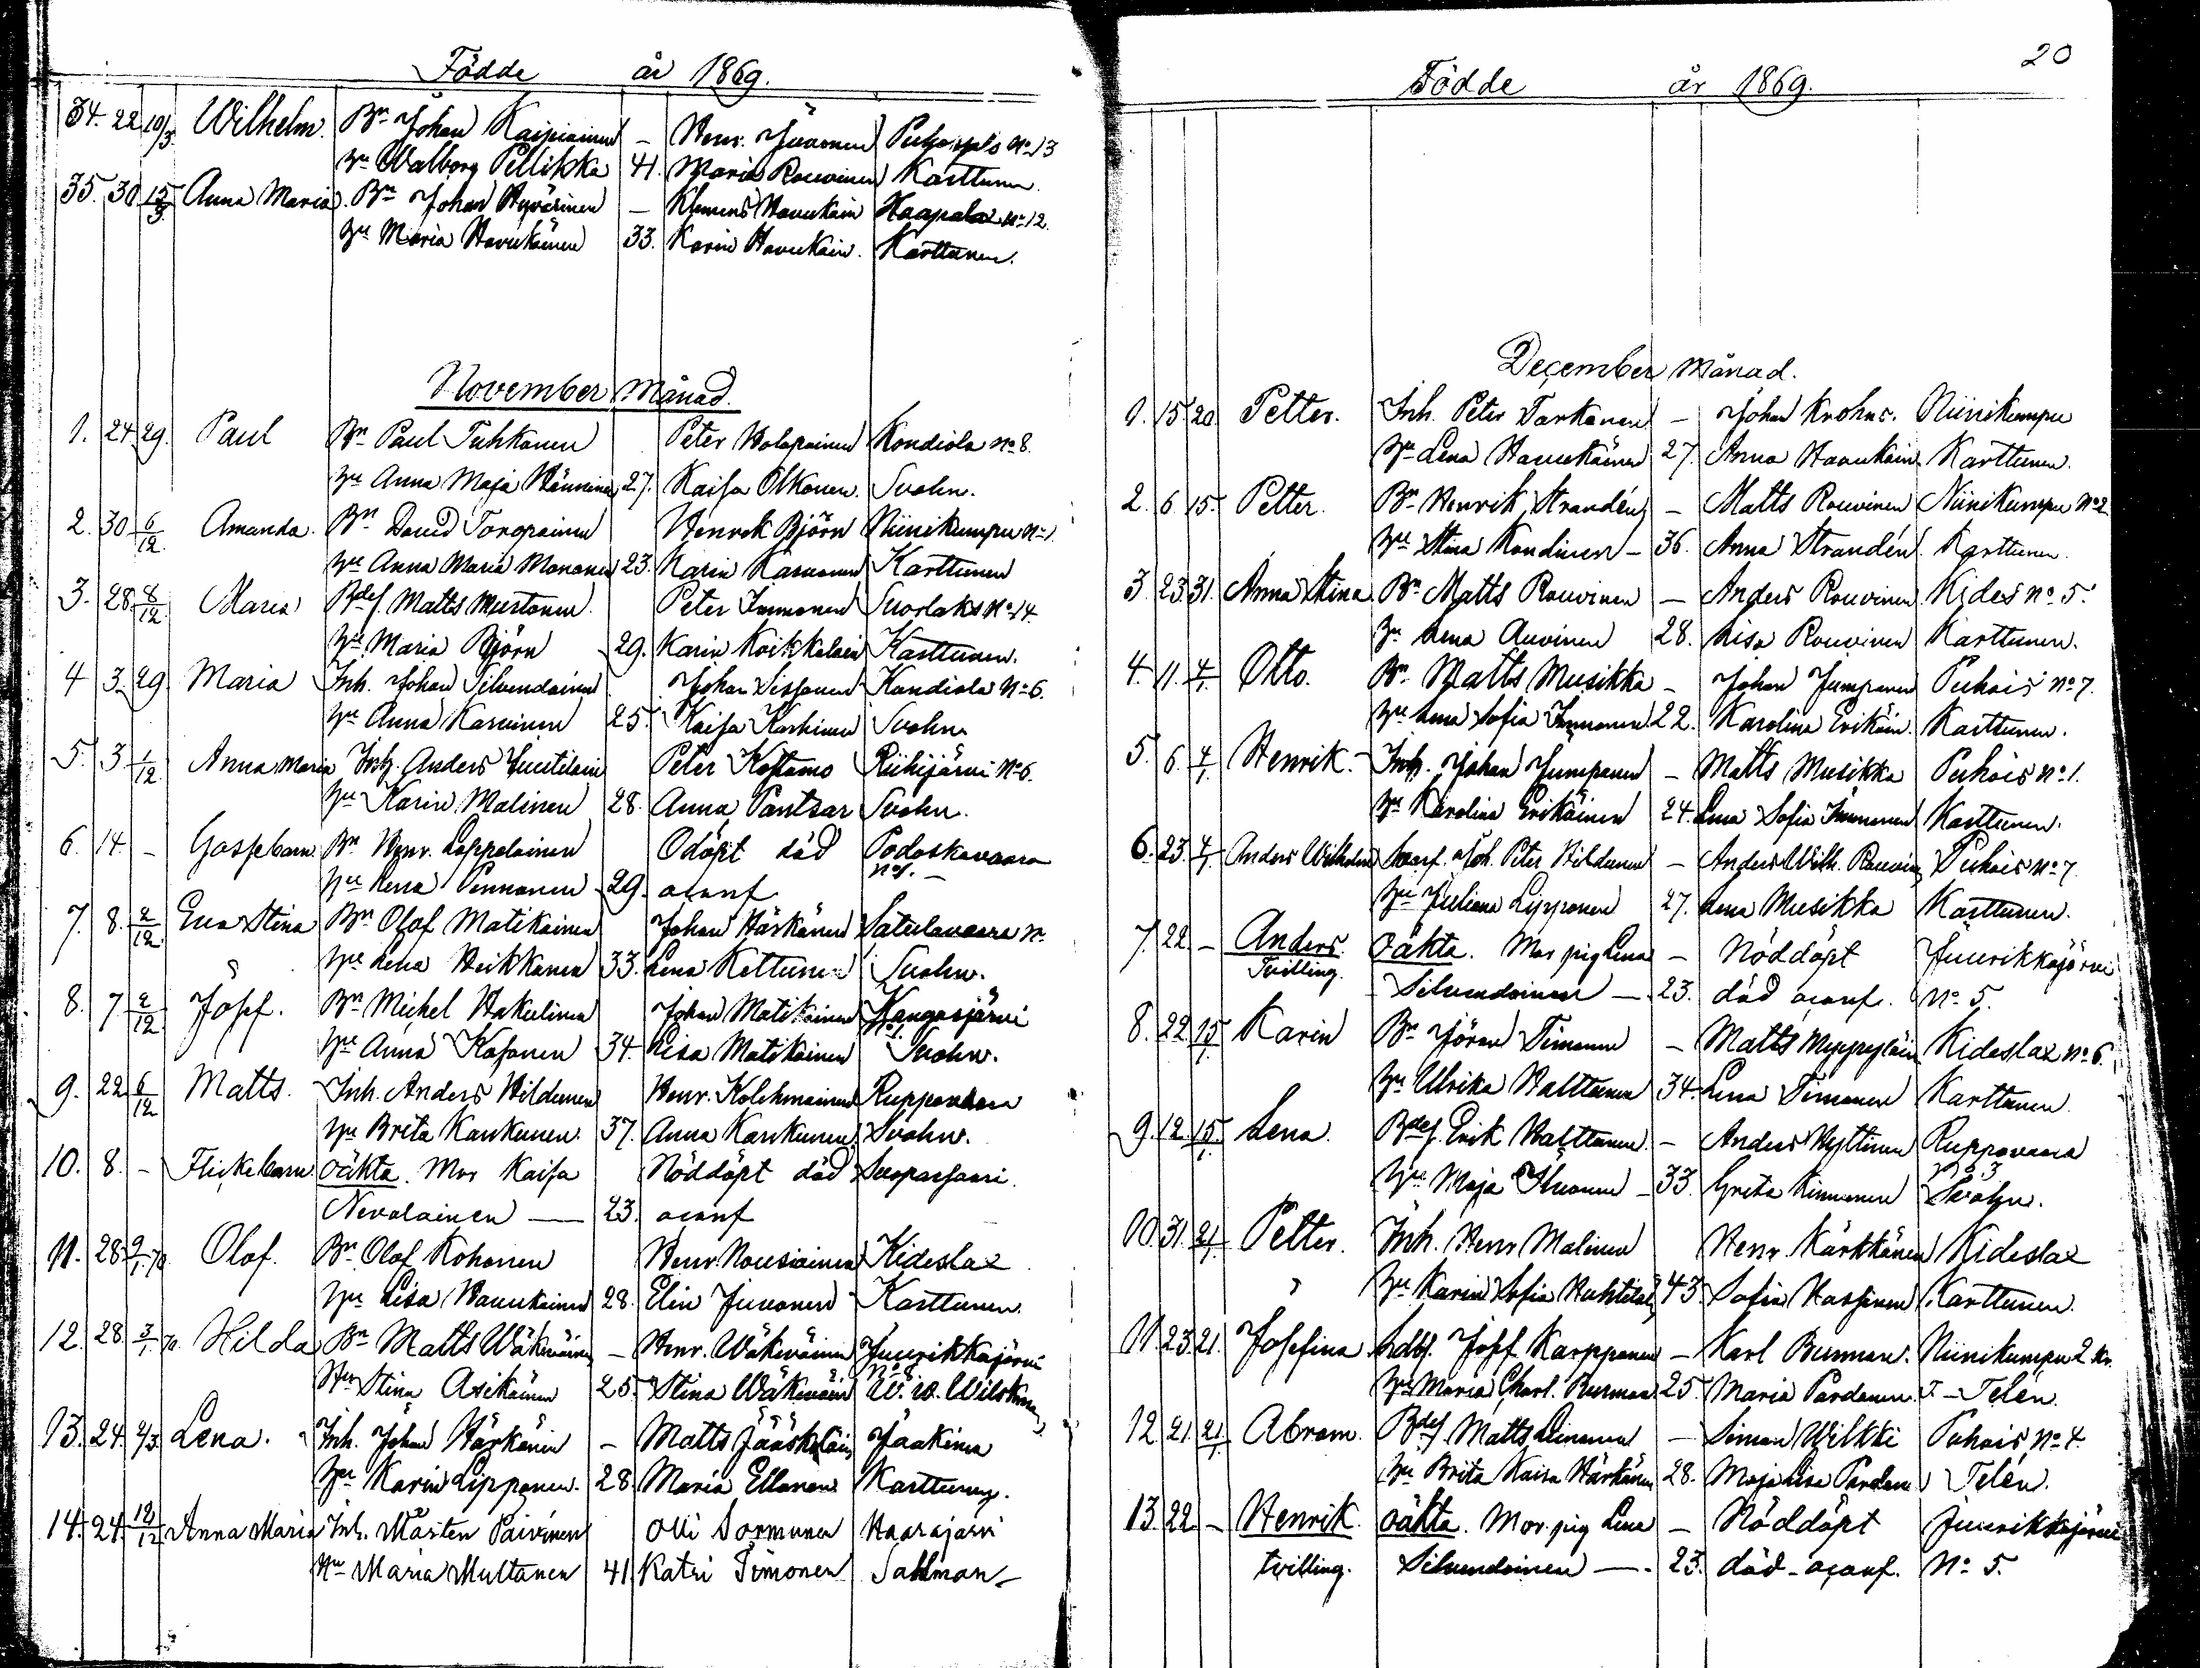 Födde år 1869.
34. 22 10/3 Wilhelm. Bn Johan Kaipiainen – Henr. Juvonen No 13
hu Walborg Pellikka 41. Maria Rouvinen Karttunen.
35. 30 15/3 Anna Maria. Bn Johan Hyvärinen – Klemens Haukkain Haapala No 12.
hu Maria Haukkainen 33. Karin Haukkain. Karttunen.
November Månad.
1. 24 29. Paul Bn Paul Tuhkanen Peter Holopainen Kondiola No 8.
hu Anna Maja Hänninen 27. Kaisa Olkonen. Svahn.
2. 30 6/12 Amanda. Bn David Toropainen Henrik Björn Niinikumpu No 1.
hu Anna Maria Mononen 23. Karin Karvonen Karttunen
3. 28 8/12 Maria Matts Mustonen Peter Immonen Suorlaks No 14.
hu Maria Björn 29. Karin Koikkalain Karttunen.
4 3. 29 Maria Inh. Johan Silvendoinen Johan Sissonen Kondiola No 6.
hu Anna Karvinen 25. Kaisa Karhinen Svahn
5. 3 1/12 Anna Maria Inh. Anders Juutilain Peter Kostamo Riihijärvi No 6.
hu Karin Malinen 28. Anna Pantsar Svahn.
6. 14. – Gossebarn Bn Henr. Leppelainen Odöpt död Podoskavaara
hu Lena Pennanen 29. No 1. –
7. 8. 2/12 Eva Stina Bn Olof Matikainen Johan Härkönen Satulavaara No
hu Lena Heikkanen 33. Lena Kettunen Svahn.
8. 7 2/12 Josef. Bn Michel Hakulinen Johan Matikainen Kangasjärvi
hu Anna Kosonen 34. Lisa Matikainen No 1. Svahn.
9. 22 6/12 Matts. Inh. Anders Hildunen Henr. Kolehmainen Ruppovaara
hu Brita Kankunen 37. Anna Kankunen Svahn.
10. 8. – Flickebarn. oäkta. Mor Kaisa Nöddöpt död Suoparsaari.
Nevalainen — 23.
11. 28 9/1 70 Olof. Bn Olof Kohonen Henr. Nousiainen Kideslax
hu Lisa Haukkainen 28. Elin Juvonen Karttunen.
12. 28. 3/1 70 Hilda Bn Matts Wäkeväinen – Henr. Wäkeväinen Juurikkajärvi
hu Stina Asikainen 25. Stina Wäkeväin Wilskman
13. 24. 2/3 Lena. Inh. Johan Härkönin – Matts Jääskeläin Jaakima
hu Karin Lipponen. 28. Maria Ellonen Karttunen.
14. 24. 12/12 Anna Maria Inh. Mårten Päivinen Olli Sormunen Haarajärvi
hu Maria Multanen 41 Katri Timonen Sahlman
20
Födde år 1869.
December Månad.
1. 15 20. Petter. Inh. Peter Tarkanen – Johan Krohns. Niinikumpu
hu Lena Haukkainen 27. Anna Haukkain. Karttunen.
2. 6 15. Petter. Bn Henrik Strandén – Matts Rouvinen Niinikumpu No 2
hu Stina Kondinen – 36. Anna Strandén. Karttunen.
3 23 31. Anna Stina Bn Matts Rouvinen – Anders Rouvinen Kides No 5.
hu Lena Auvinen 28. Lisa Rouvinen Karttunen.
4. 11. 4/1 Otto. Bn Matts Musikka – Johan Jumponen Puhois No 7.
hu Lena Sofia Immonen 22. Karolina Erikäin. Karttunen.
5. 6. 4/1 Henrik. Inh. Johan Jumponen – Matts Musikka Puhois No 1.
hu Karolina Erikäinen 24. Lena Sofia Immonen Karttunen.
6. 23. 4/1 Anders Wilhelm Joh. Peter Hildunen – Anders Wilh. Rouvin Puhois No 7
hu Juliana Lipponen 27. Lena Musikka Karttunen.
7. 22 – Anders. oäkta. Mor pig Lena – Nöddöpt Juurikkajärvi
Tvilling. Silvendoinen – 23. död No 5.
8. 22 15/1 Karin Bn Jöran Timonen – Matts Kideslax No 6.
hu Ulrika Halttunen 34. Lena Timonen Karttunen.
9. 12. 15/1 Lena. Erik Halttunen – Anders Hyttinen Ruppovaara
hu Maja Ihvonen – 33. Greta Kinnunen No 3 Svahn.
10. 31. 21/1 Petter. Inh. Henr. Malinen Henr. Kärkkänen Kideslax
hu Karin Sofia 43. Sofia Hassinen Karttunen.
11. 23 21. Josefina Josef Karpponen – Karl Burman. Niinikumpu 2
hu Maria Charl. Burman 25. Maria Pardanen Telén.
12. 21. 21/1 Abram. Matts Linanen – Simon Wilkki Puhois No 4.
hu Brita Kaisa Härkönen 28. Maja Lisa Pardan Telén.
13. 22 – Henrik. oäkta. Mor. pig Lena – Nöddöpt Juurikkajärvi
tvilling. Silvendoinen – 23. död No 5.